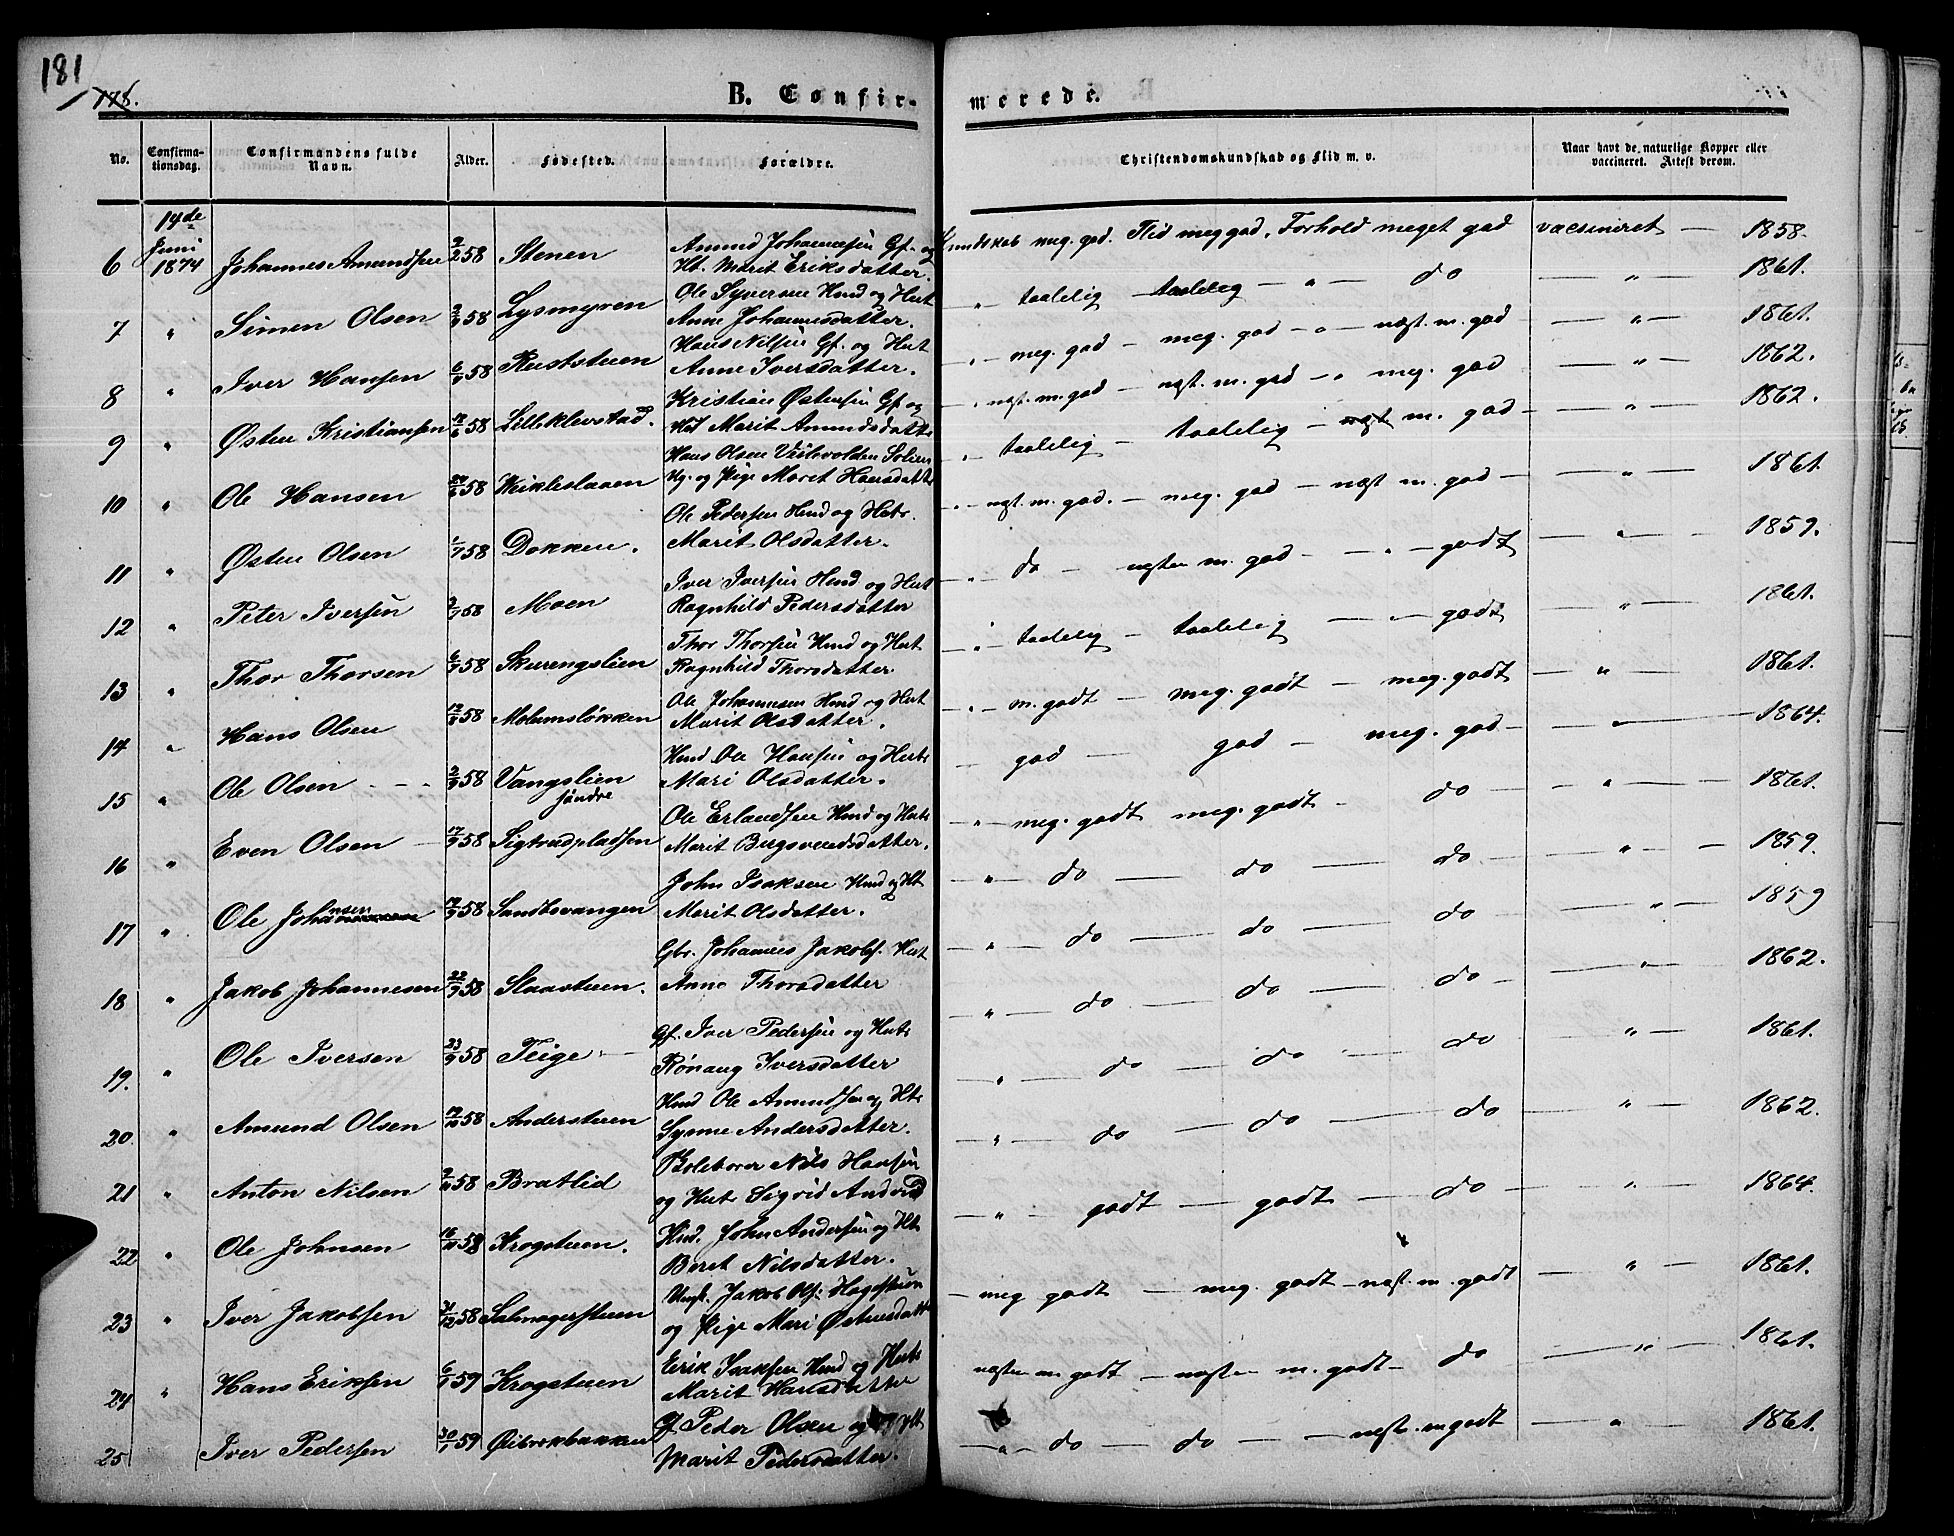 181
178.
B. Confirmerede.
No. Confirmationsdag. Confirmandens fulde Navn. Alder. Fødested. Forældre. Christendomskundskab og Flid m. v. Naar havt de naturlige Kopper eller vaccineret. Attest derom.
14de Juni 1874
6 Johannes Amundsen 2/2 58 Stenen Amund Johannesen Gf. og Ht. Marit Eriksdatter Kundskab meg. god. Flid meg god. Forhold meget god vacsineret — 1858.
7 " Simen Olsen 58 Lysmyren Ole Syversen Hmd og Hust Anne Johannesdatter. " taalelig — taalelig — " — do — " — 1861.
8 " Iver Hansen 58 Ruststuen Hans Nilsen Gf. og Hust Anne Iversdatter. " meg. god — meg. god — " — næst. m. god — " — 1861.
9 " Østen Kristiansen 58 Lilleklevstad. Kristian Østensen Gf. og Hst Marit Amundsdatter " næst. m. god — næst. m. god — " meg. god — " — 1862.
10 " Ole Hansen 58 Weikleslaaen Hans Olsen Solien Ug. og Pige Maret Hansdatt " taalelig — taalelig — m. god — " — 1862.
11 " Østen Olsen 1/7 58 Dokken. Ole Pedersen Hmd og Hstr. Marit Olsdatter. " næst. m. god. — meg. god — næst m. god — " — 1861.
12 " Peter Iversen 58 Moen Iver Iversen Hmd og Hust Ragnhild Pedersdatter " do — næsten m. god — " — godt — " — 1859.
13 " Thor Thorsen 58 Skurengslien Thor Thorsen Hmd og Hust Ragnhild Thorsdatter " taalelig — taalelig — " — godt — " — 1861.
14 " Hans Olsen 58 Molumsløkken Ole Johannesen Hmd og Hust Marit Olsdatter. " m. godt — meg. godt — meg. godt — " — 1861.
15 " Ole Olsen 58 Vangslien søndre Hmd Ole Hansen og Hustr Mari Olsdatter. god — god — meg. god — 1864.
16 " Even Olsen 17/9 58 Sigtrudpladsen Ole Erlandsen Hmd og Hustr Marit Bergsveendsdatter. " meg. godt meg. godt — do — " — 1861.
17 " Ole Johnsen 58 Sandbovangen John Isaksen Hmd og Ht Marit Olsdatter. " do — do — do — " — 1859.
18 " Jakob Johannesen 22/9 58 Slaastuen. Gbr. Johannes Jakobs. Hust Anne Thorsdatter " do — do — do — " — 1859
19. " Ole Iversen 23/9 58 Teige Gf. Iver Pedersen og Hustr Rønaug Iversdatter " do — do — do — " 1862.
20. " Amund Olsen 58 Anderstuen Hmd Ole Amundsen og Hstr Synne Andersdatter. " do — do — do " — 1861.
21 " Anton Nilsen 58 Bratlid Nils Hansen og Hust Sigrid Andersd " do — do — do — " — 1862.
22 " Ole Johnsen 58 Krogstuen. Hmd. John Andersen og Hstr Beret Nilsdatter. " godt — godt — do — " — 1864.
23 " Iver Jakobsen 58 Salmagerstuen Jakob Ols. Hagestuen og Pige Mari Østensdatter — meg godt — meg. godt — næst. m. godt — " — 1861.
24 " Hans Eriksen 6/1 59 Krogstuen Erik Isaksen Hmd og Hustr Marit Hansdatter næsten m. godt — næsten m. godt — do — " — 1861.
25 Iver Pedersen 30/1 59 Gf Peder Olsen og Ht Marit Pedersdatter. — " — do — do — næst. m godt — " — 1861.